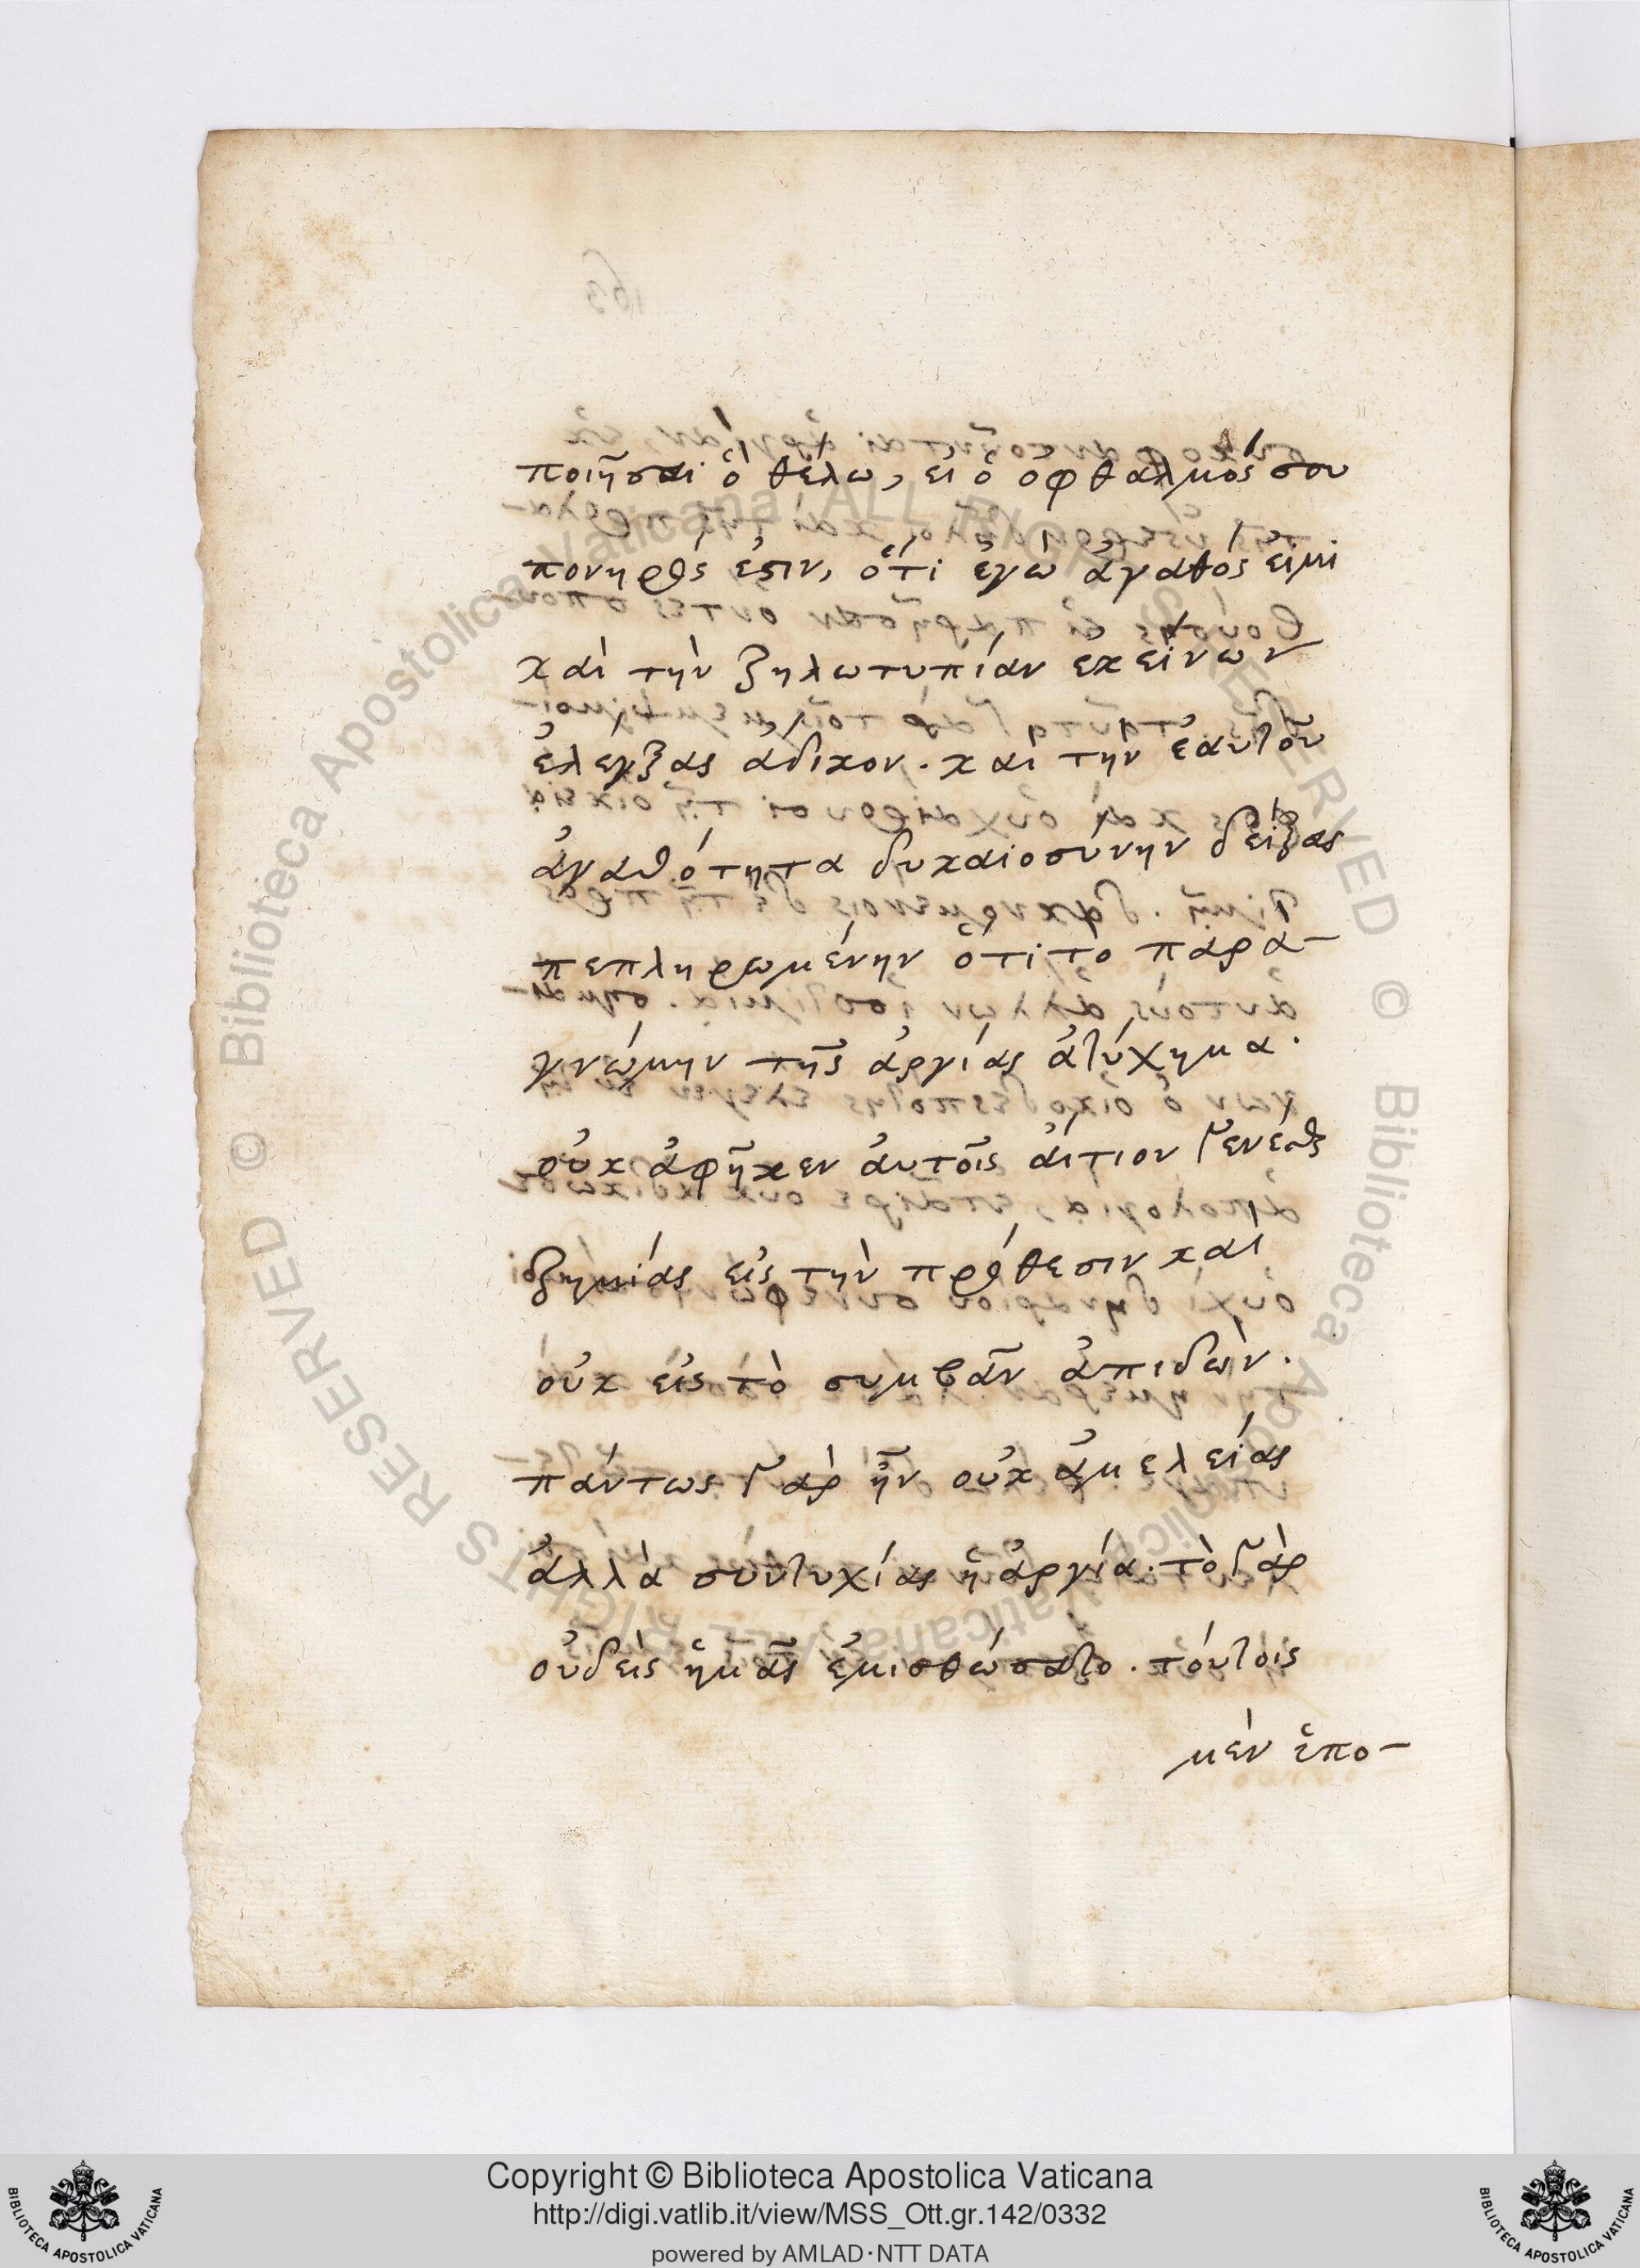 ποιῆσαι ὃ θέλω, εἰ ὁ ὀφθαλμός σου
πονηρός ἐστιν, ὅτι ἐγὼ ἀγαθός εἰμι
καὶ τὴν ζηλωτυπίαν ἐκείνων
ἐλεγξας ἄδικον. καὶ τὴν ἑαυτοῦ
ἀγαθότητα δυκαιοσύνην δείξας
πεπληρωμένην ὅτι τὸ παρα-
γνώμην τῆς ἀργίας ἀτύχημα.
οὐκ ἀφῆκεν ἀυτοῖς ἄιτιον γενέσθαι
ζημίας εἰς τὴν πρόθεσιν καὶ
οὐκ εἰς τὸ συμβᾶν ἀπιδών.
πάντως γὰρ ἦν οὐκ ἀμελείας
ἀλλὰ συντυχίας ἡ ἀργία. τὸ γὰρ
οὐδεὶς ἡμᾶς ἐμισθώσατο. τόυτοις
μὲν ἱπο-
Copyright © Biblioteca Apostolica Vaticana
http://digi.vatlib.it/view/MSS_Ott.gr.142/0332
powered by AMLAD·NTT DATA
BIBLIOTECA APOSTOLICA VATICANA
BIBLIOTECA APOSTOLICA VATICANA
© Biblioteca Apostolica Vaticana ALL RIGHTS RESERVED
© Biblioteca Apostolica Vaticana ALL RIGHTS RESERVED